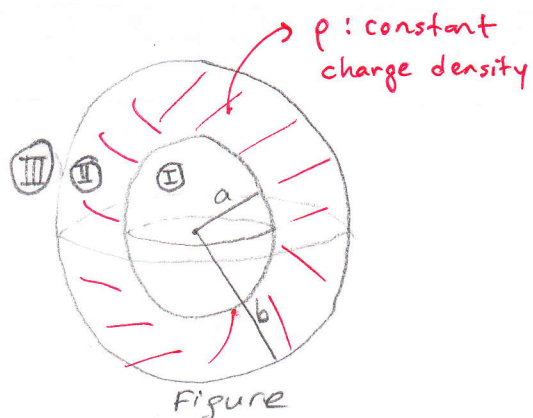 ρ : constant
charge density
III
II
I
a
b
Figure